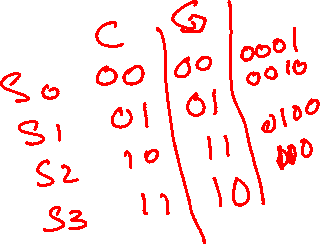 C G
S0 00 00 0001
S1 01 01 0010
S2 10 11 0100
S3 11 10